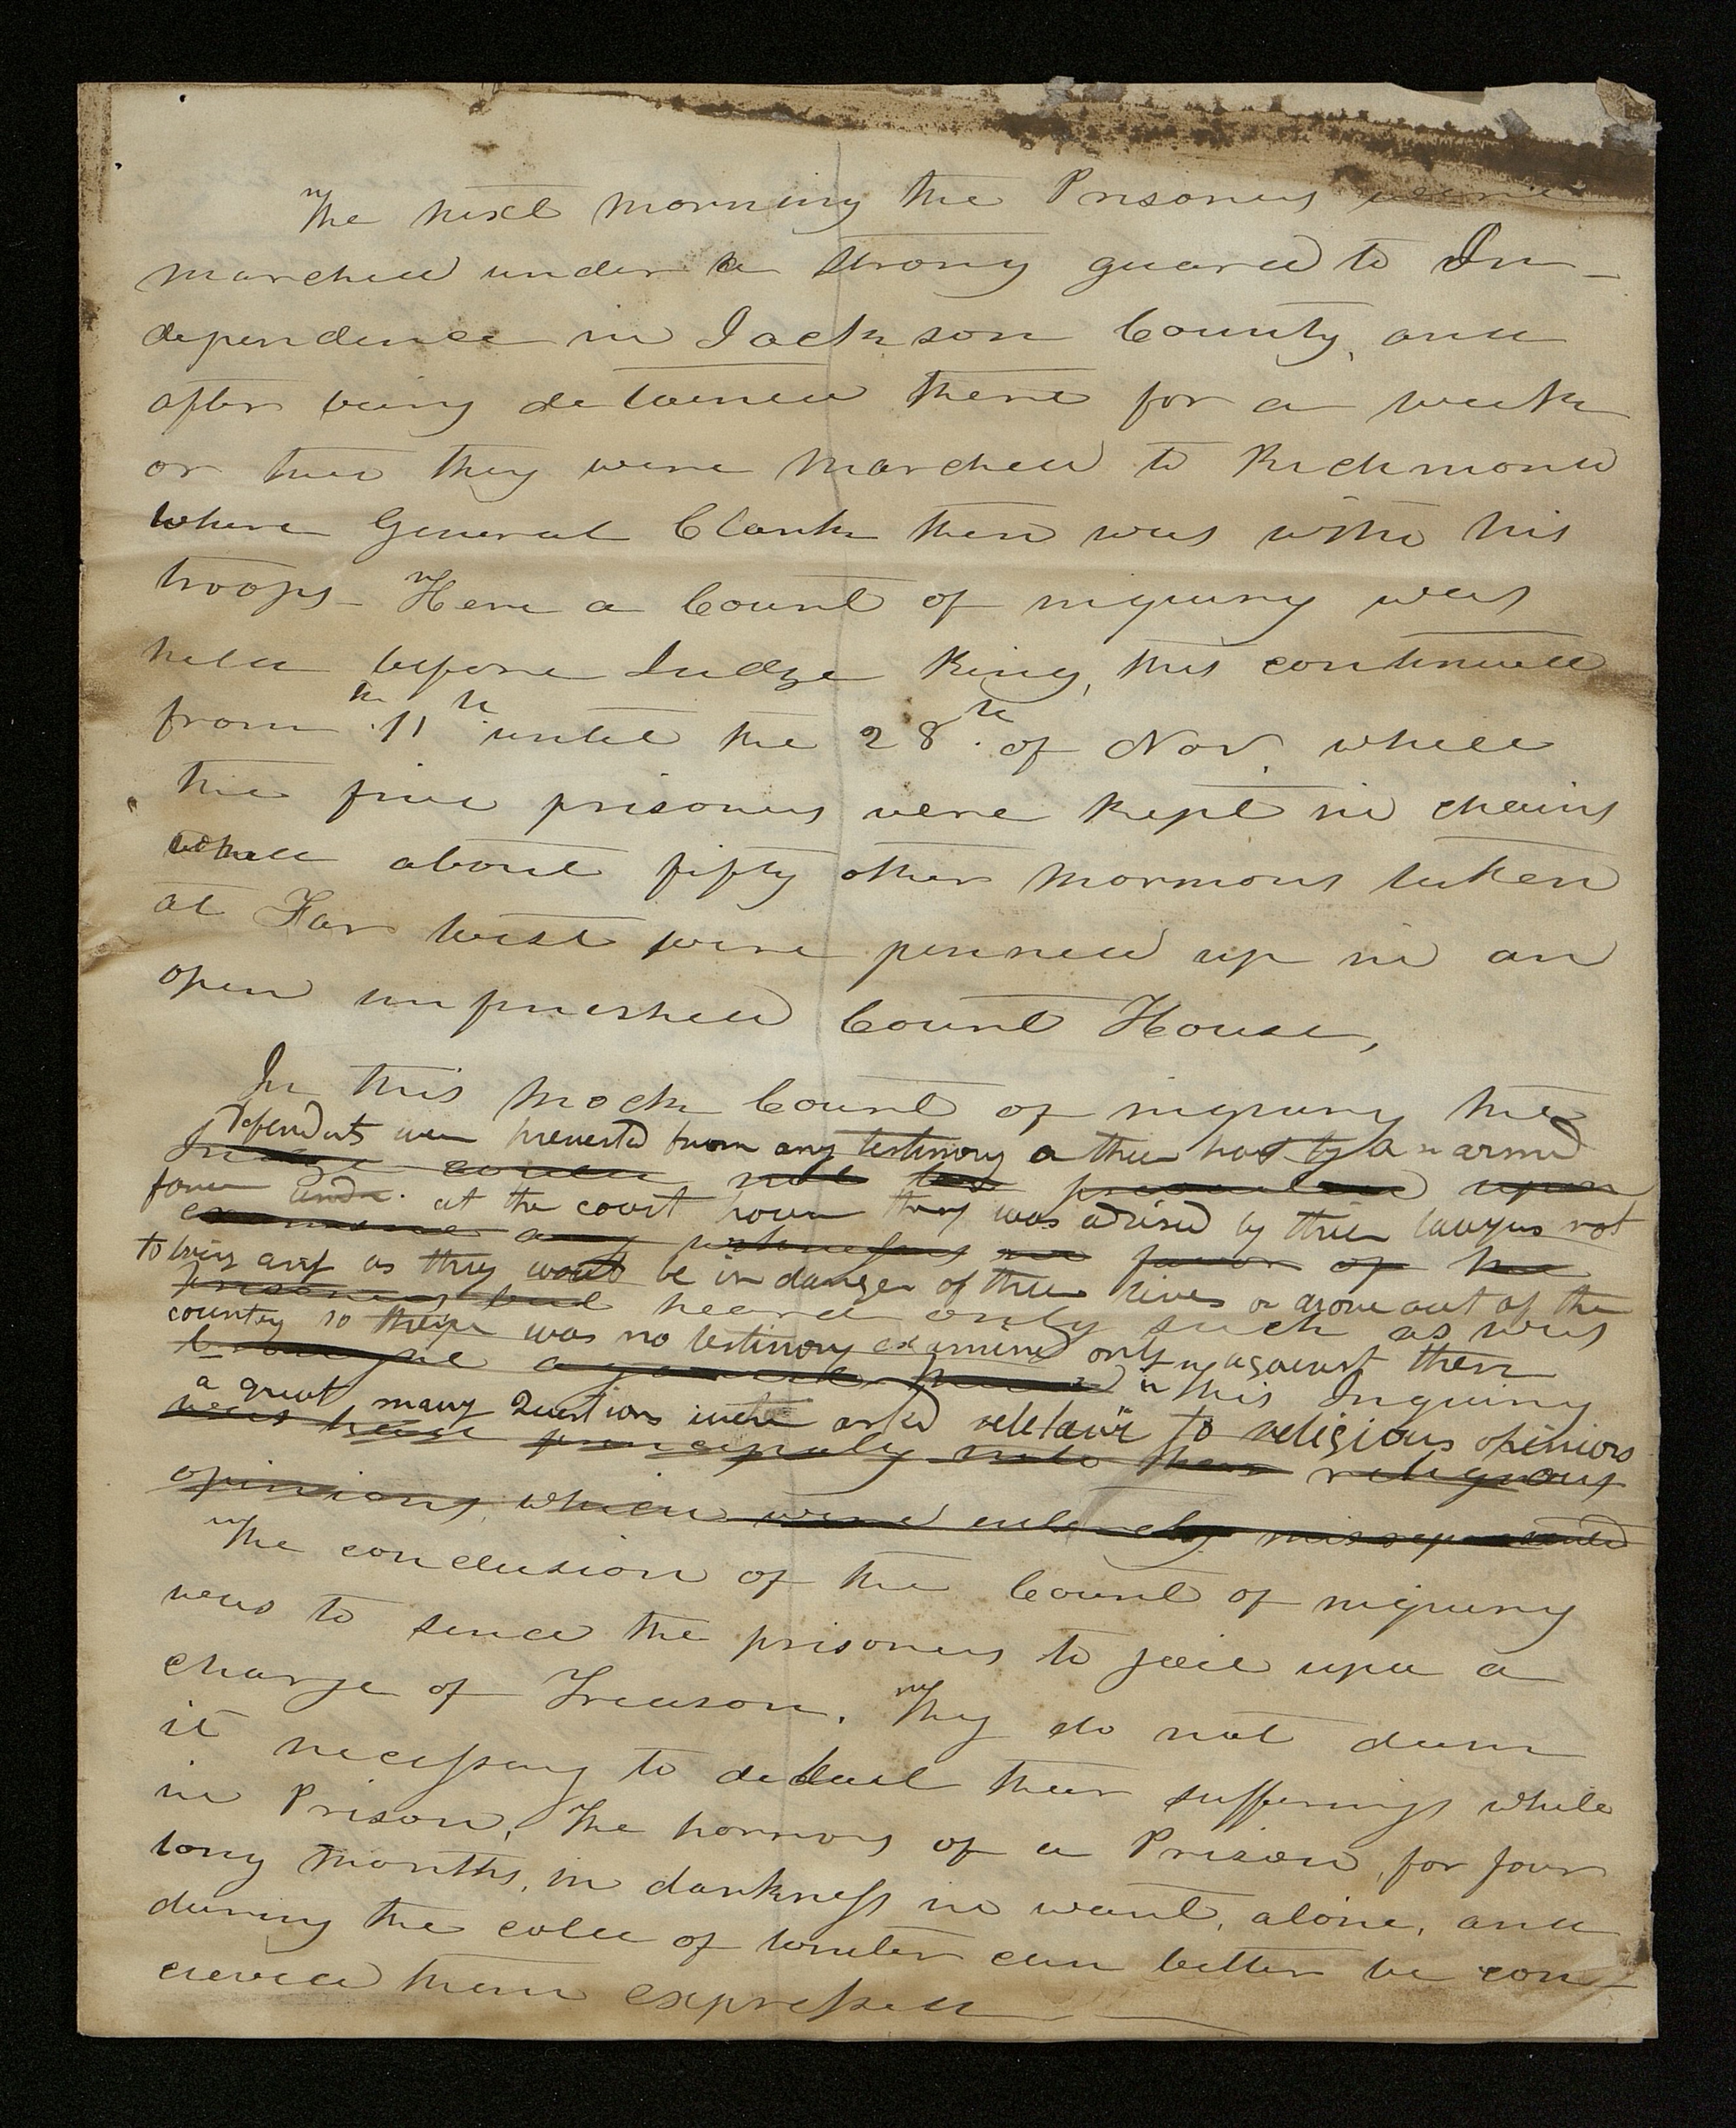 The next morning the Prisoners were
marched under a strong guard to In-
dependence in Jackson County, and
after being detained there for a week
or two they were marched to Richmond
where General Clark then was with his
troops - Here a Court of inquiry was
held before Judge King, this continued
from the 11th until the 28th of Nov. while
the five prisoners were kept in chains
while about fifty other mormons taken
at Far West were penned up in an
open unfinished Court House,
In this mock Court of inquiry the
Defendants were prevented from any testimony
Judge could not be prevailed upon
at the court house they was advised by their lawyers not
examine any witnesses in favor of the
to bring any as they would be in danger of their lives or drove out of the
prisoners but heard only such as was
country so there was no testimony examined only against them
in this Inquiry
a great many Questions were asked relative to religious opinions
was principally into their religious
opinions, which were entirely misrepresented
The conclusion of the Court of inquiry
was to send the prisoners to jail upon a
charge of Treason. They do not deem
it necessary to detail their sufferings while
in Prison, The horrors of a Prison, for four
long months, in darkness in want, alone, and
during the cold of winter can better be con-
cieved than expressed